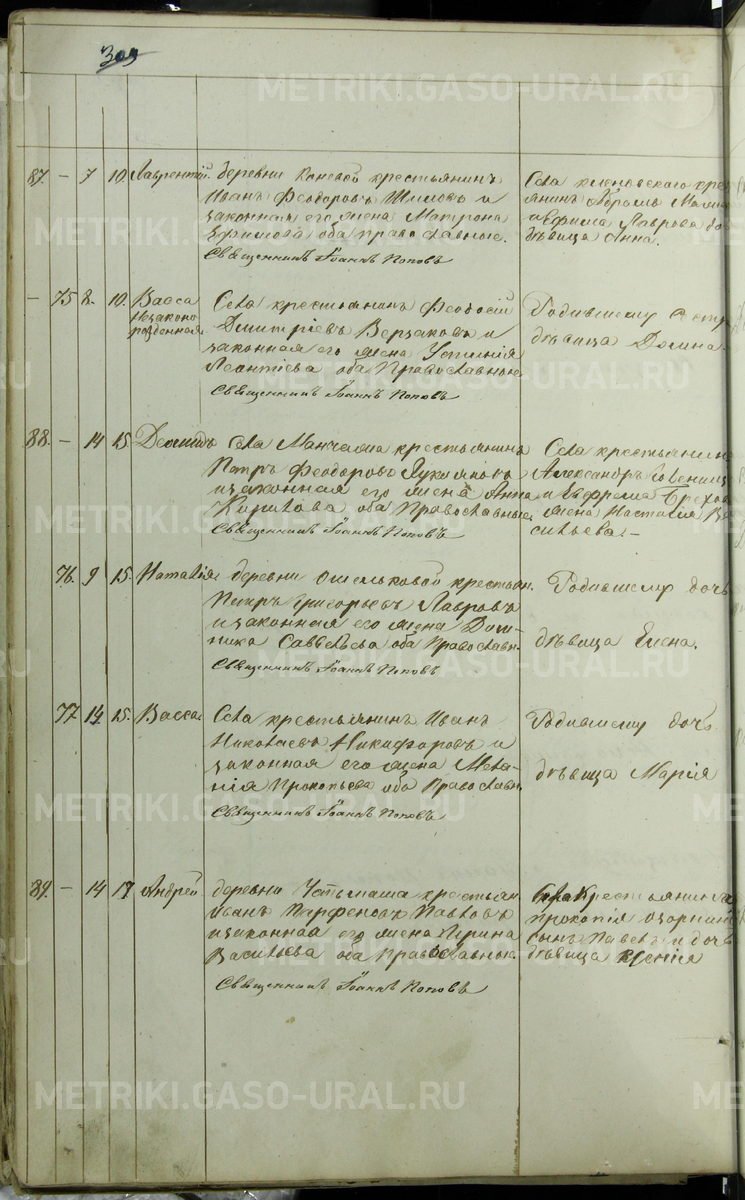 309
87. – 7 10. Лаврентий. деревни Коневой крестьянинъ
Иванъ Феодоровъ Шиловъ и
законная его жена Матрона
Ефимова оба православные.
Священникъ Iоаннъ Поповъ
Села кленовского крес
янинъ Абрамъ
Лаврова до
дѣвица Анна.
– 75 8. 10. Васса
Незаконо
рожденная
Села крестьянинъ Феодосiй
Дмитрiевъ и
законная его жена Устинiя
Леонтiева оба Православные
Священникъ Iоаннъ Поповъ
Родившему сестр
дѣвица Домна
88. – 14 15. Демидъ Села Манчажа крестьянинъ
Петръ Феодоровъ Лукояновъ
и законная его жена Анна
Карпова оба Православные
Священникъ Iоаннъ Поповъ
Села крестьянинъ
Александръ
жена Наталiя Ва
сильева. –
76. 9 15. Наталiя деревни крестьян.
Петръ Григорьевъ Лавровъ
и законная его жена Дом-
ника Савельева оба Православн.
Священникъ Iоаннъ Поповъ
Родившему дочь
дѣвица Елена.
77. 14 15. Васса Села крестьянинъ Иванъ
Николаевъ Никифоровъ и
законная его жена Мела-
нiя Прокопьева оба Православн.
Священникъ Iоаннъ Поповъ
Родившему дочь
дѣвица Марiя
89. – 14 17 Андрей деревни Устьмаша крестьян
Иванъ Парфеновъ Павловъ
и законная его жена Ирина
Васильева оба Православные
Священникъ Iоаннъ Поповъ
Села Крестьянина
прокопiя
сынъ Павелъ и дочь
дѣвица Ксенiя
METRIKI.GASO-URAL.RU